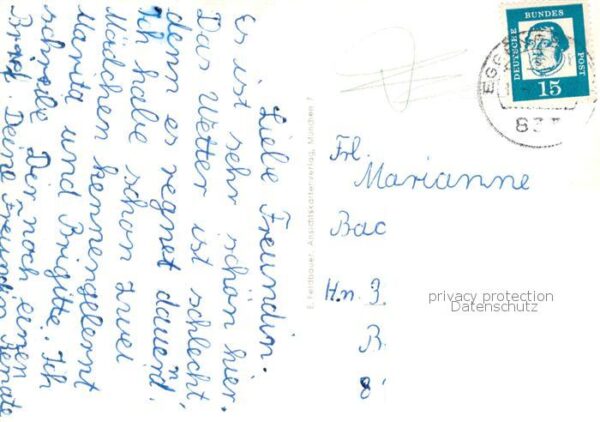 Liebe Freundin.
Es ist sehr schön hier.
Das Wetter ist schlecht
denn es regnet dauernd.
Ich habe schon zwei
Mädchen kennengelernt
Marita und Brigitte. Ich
schreibe Dir noch einen
Brief. Deine Freundin Renate
E. Feldbauer, Ansichtskartenverlag, München 7
DEUTSCHE BUNDES POST
15
EGG
83
Frl.
Marianne
Bac
H.n.
B.
8
privacy protection
Datenschutz